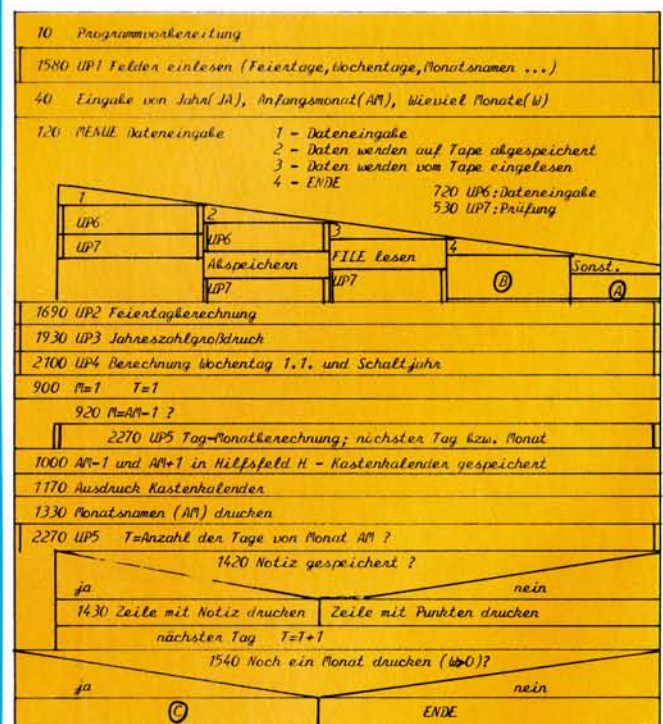 10 Programmvorbereitung
1580 UP1 Felder einlesen (Feiertage,Wochentage,Monatsnamen ...)
40 Eingabe von Jahr(JA), Anfangsmonat(AM), Wieviel Monate(W)
120 MENUE Dateneingabe 1 - Dateneingabe
2 - Daten werden auf Tape abgespeichert
3 - Daten werden vom Tape eingelesen
4 - ENDE
720 UP6:Dateneingabe
530 UP7:Prüfung
1 2 3 4 Sonst.
UP6 UP6 FILE lesen B A
UP7 Abspeichern UP7
UP7
1690 UP2 Feiertagberechnung
1930 UP3 Jahreszahlgroßdruck
2100 UP4 Berechnung Wochentag 1.1. und Schaltjahr
900 M=1 T=1
920 M=AM-1 ?
2270 UP5 Tag-Monatberechnung; nächster Tag bzw. Monat
1000 AM-1 und AM+1 in Hilfsfeld H - Kastenkalender gespeichert
1170 Ausdruck Kastenkalender
1330 Monatsnamen (AM) drucken
2270 UP5 T=Anzahl der Tage von Monat AM ?
1420 Notiz gespeichert ?
ja nein
1430 Zeile mit Notiz drucken Zeile mit Punkten drucken
nächster Tag T=T+1
1540 Noch ein Monat drucken (W>0)?
ja nein
C ENDE